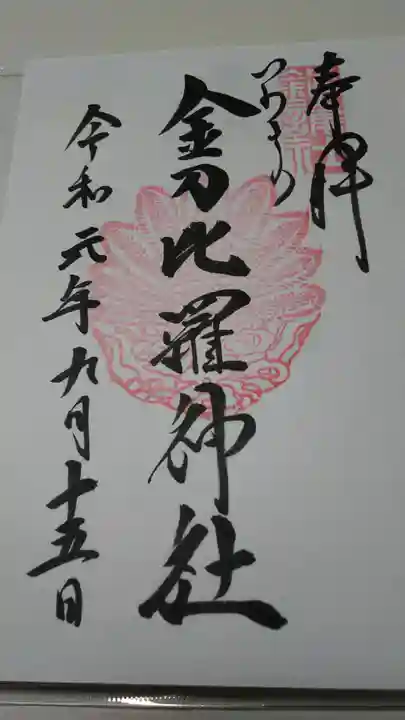 奉拝
いわさの
金刀比羅神社
令和元年九月十五日